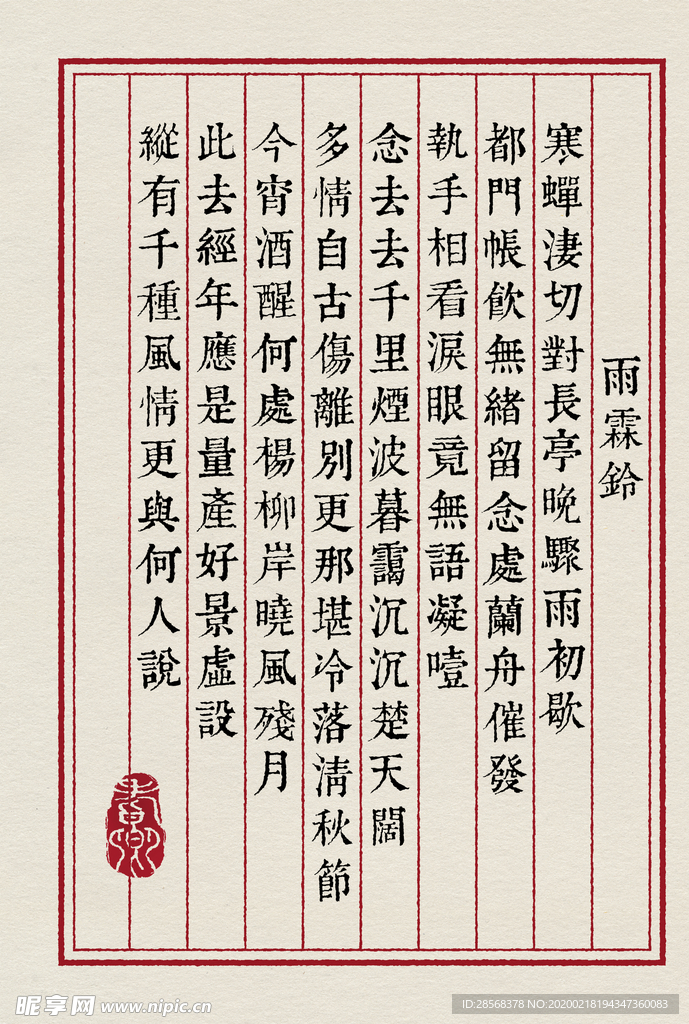 雨霖鈴
寒蟬淒切對長亭晚驟雨初歇
都門帳飲無緒留念處蘭舟催發
執手相看淚眼竟無語凝噎
念去去千里煙波暮靄沉沉楚天闊
多情自古傷離別更那堪冷落清秋節
今宵酒醒何處楊柳岸曉風殘月
此去經年應是量產好景虛設
縱有千種風情更與何人說
昵享网 www.nipic.cn
ID:28568378 NO:20200218194347360083